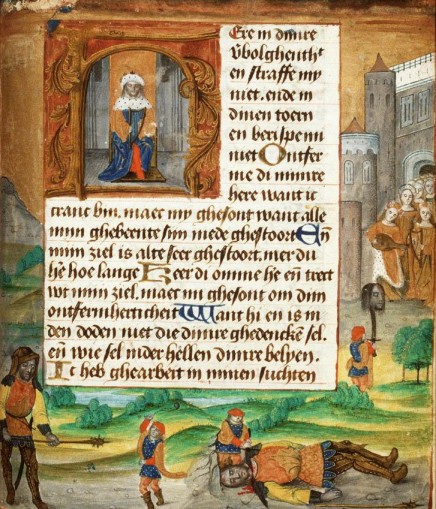 HEre in dinre
v̄bolghenthʼt
en straffe my
niet. ende in
dinen toern
en berispe mi
niet Ontfer
me di minre
here want ic
cranc bin. maec my ghesont want alle
mijn ghebeente sijn mede ghestoort Eñ
mijn ziel is alte seer ghestoort. mer du
h̄e hoe lange Heer di omme h̄e en trect
wt mijn ziel. maec mi ghesont om dijn
ontfermherticheit Want hi en is in
den doden niet die dinre ghedenckē sel.
eñ wie sel inder hellen dinre belyen.
Ic heb ghearbeit in minen suchten